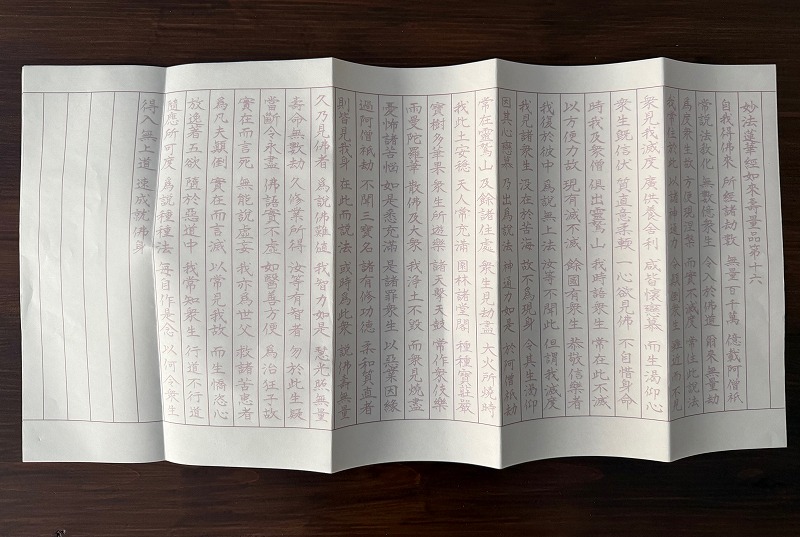 妙法蓮華經如來壽量品第十六
自我得佛來 所經諸劫數 無量百千萬 億載阿僧祇
常説法教化 無數億衆生 令入於佛道 爾來無量劫
爲度衆生故 方便現涅槃 而實不滅度 常住此説法
我常住於此 以諸神通力 令顚倒衆生 雖近而不見
衆見我滅度 廣供養舍利 咸皆懷戀慕 而生渇仰心
衆生既信伏 質直意柔軟 一心欲見佛 不自惜身命
時我及衆僧 俱出靈鷲山 我時語衆生 常在此不滅
以方便力故 現有滅不滅 餘國有衆生 恭敬信樂者
我復於彼中 爲説無上法 汝等不聞此 但謂我滅度
我見諸衆生 没在於苦海 故不爲現身 令其生渇仰
因其心戀慕 乃出爲説法 神通力如是 於阿僧祇劫
常在靈鷲山 及餘諸住處 衆生見劫盡 大火所燒時
我此土安穩 天人常充滿 園林諸堂閣 種種寶莊嚴
寶樹多華果 衆生所遊樂 諸天撃天鼓 常作衆伎樂
雨曼陀羅華 散佛及大衆 我淨土不毀 而衆見燒盡
憂怖諸苦惱 如是悉充滿 是諸罪衆生 以惡業因緣
過阿僧祇劫 不聞三寶名 諸有修功德 柔和質直者
則皆見我身 在此而説法 或時爲此衆 説佛壽無量
久乃見佛者 爲説佛難値 我智力如是 慧光照無量
壽命無數劫 久修業所得 汝等有智者 勿於此生疑
當斷令永盡 佛語實不虛 如醫善方便 爲治狂子故
實在而言死 無能説虛妄 我亦爲世父 救諸苦患者
爲凡夫顚倒 實在而言滅 以常見我故 而生憍恣心
放逸著五欲 墮於惡道中 我常知衆生 行道不行道
隨應所可度 爲説種種法 每自作是念 以何令衆生
得入無上道 速成就佛身